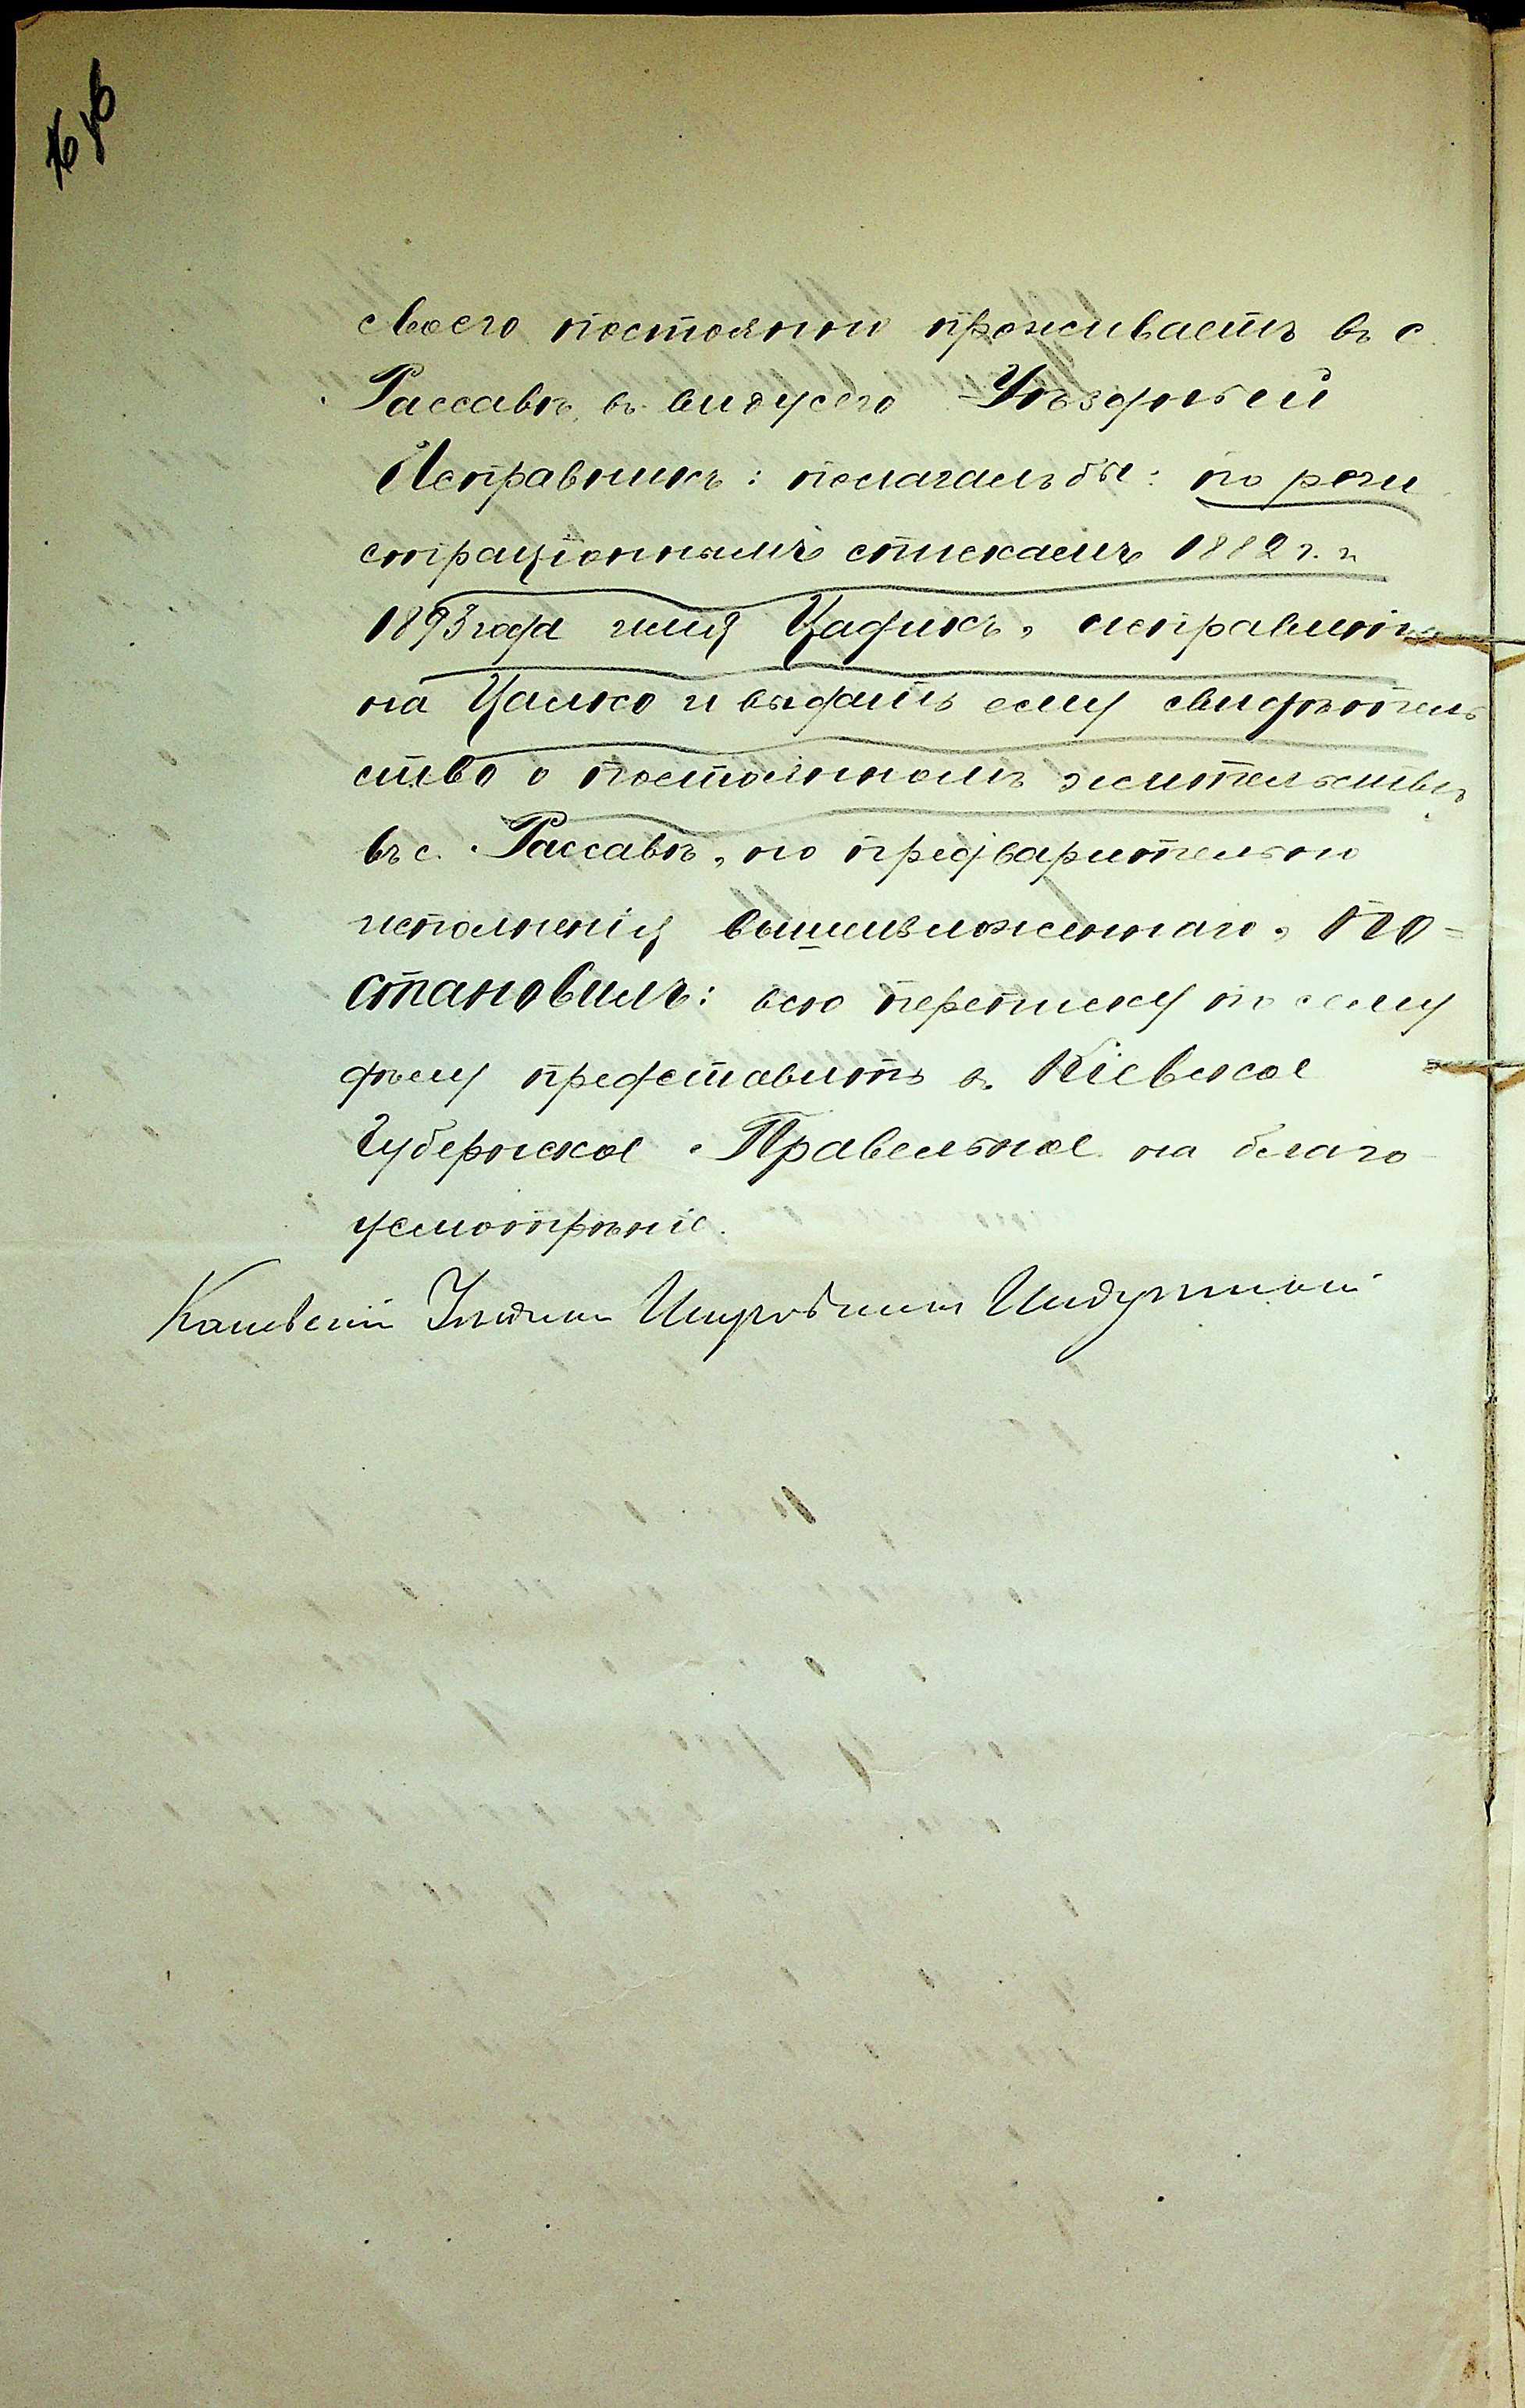 своего постоянно проживаетъ въ с.
Рассавѣ, въ виду сего Уѣздный
Исправникъ: полагалъ бы: по реги
страціоннымъ спискамъ 1882 г. и
1893 года имя Цадикъ, исправить
на Цалко и выдать ему свидѣтель
ство о постоянномъ жительствѣ
въ с. Рассавѣ, но предварительно
исполненія вышеизложеннаго, по=
становилъ: всю переписку по сему
дѣлу представить въ Кіевское
Губернское Правленіе на благо
усмотрѣніе.
Каневскій Уѣздный Исправникъ